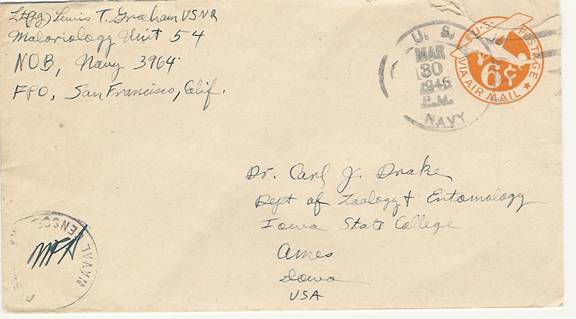 Lt(jg) Lewis T. Graham USNR
Malariology Unit 54
NOB, Navy 3964
FPO, San Francisco, Calif.
U. S.
MAR
30
1945
P.M.
NAVY
U.S. POSTAGE
6¢
VIA AIR MAIL
Dr. Carl J. Drake
Dept of Zoology & Entomology
Iowa State College
Ames
Iowa
USA
NAVAL